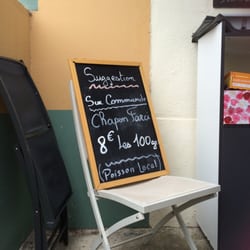 Suggestion
Sur Commande
Chapon Farci
8€ Les 100g
(Poisson Local)